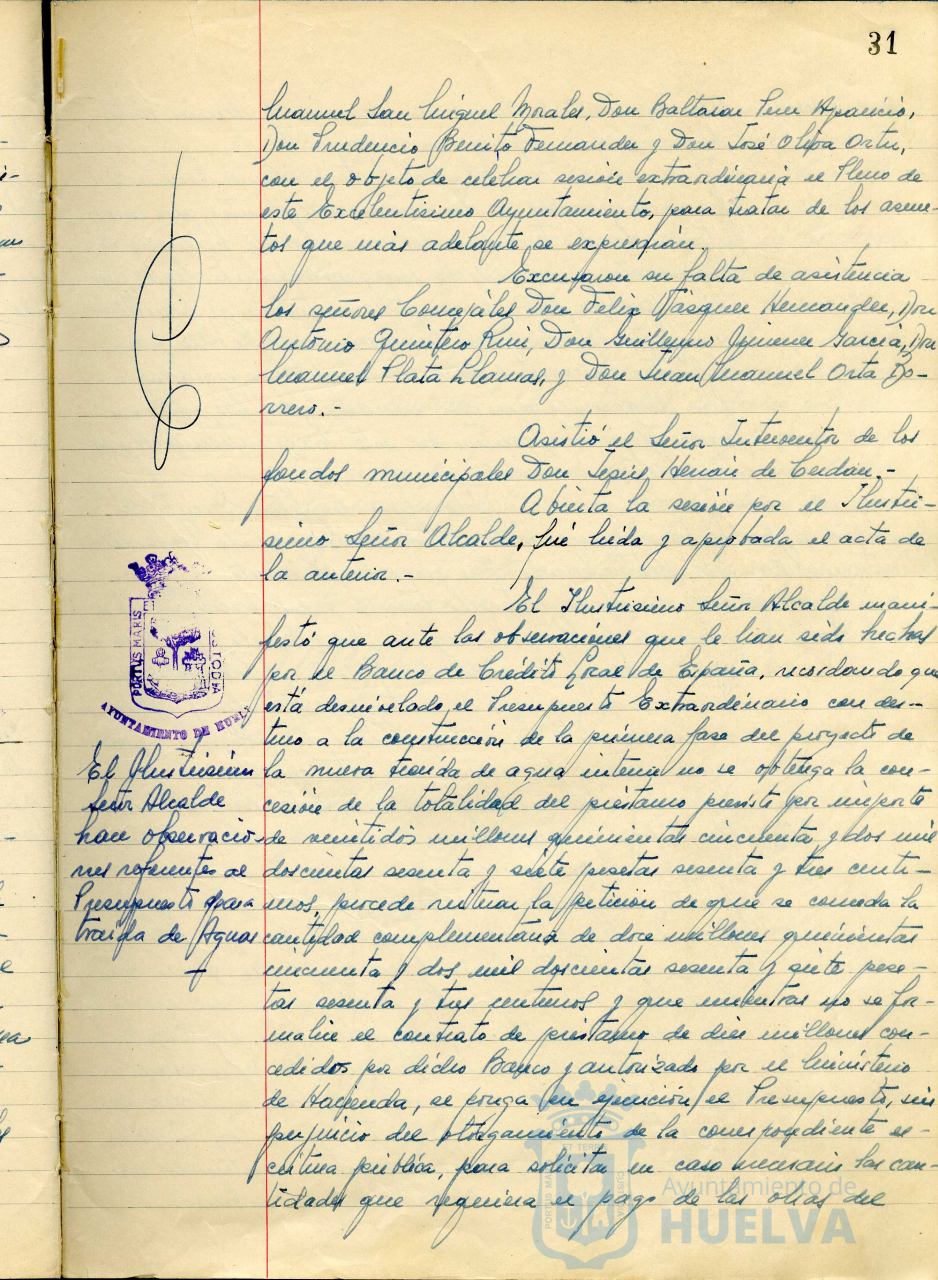 31
Manuel San Miguel Morales, Don Baltasar Aparicio,
Don Prudencio Benito Fernandez y Don José Oliva Ortiz,
con el objeto de celebrar sesión extraordinaria el Pleno de
este Excelentisimo Ayuntamiento, para tratar de los asun-
tos que más adelante se expresarán.
Excusaron su falta de asistencia
los señores Concejales Don Felix Vázquez Hernandez, Don
Antonio Quintero Ruiz, Don Guillermo Jimenez Garcia, Don
Manuel Plata Llamas, y Don Juan Manuel Orta Bo-
rrero.-
Asistió el Señor Interventor de los
fondos municipales Don Jesús Hernán de Cerdán.-
Abierta la sesión por el Ilustri-
simo Señor Alcalde, fué leida y aprobada el acta de
la anterior.-
El Ilustrisimo Señor Alcalde mani-
festó que ante las observaciones que le han sido hechas
por el Banco de Crédito Local de España, recordando que
está desnivelado el Presupuesto Extraordinario con des-
tino a la construcción de la primera fase del proyecto de
la nueva traida de agua interin no se obtenga la con-
cesión de la totalidad del préstamo previsto por importe
de veintidós millones quinientas cincuenta y dos mil
doscientas sesenta y siete pesetas sesenta y tres centi-
mos, procede reiterar la petición de que se conceda la
cantidad complementaria de doce millones quinientas
cincuenta y dos mil doscientas sesenta y siete pese-
tas sesenta y tres centimos y que mientras no se for-
malice el contrato de préstamo de diez millones con-
cedidos por dicho Banco y autorizado por el Ministerio
de Hacienda, se ponga en ejecución el Presupuesto, sin
perjuicio del otorgamiento de la correspondiente es-
critura pública, para solicitar en caso necesario las can-
tidades que requiera el pago de las obras del
PORTUS MARIS
CUSTODIA
AYUNTAMIENTO DE HUELVA
El Ilustrisimo
Señor Alcalde
han observacio-
nes referentes al
Presupuesto para
traida de Aguas
Ayuntamiento de
HUELVA